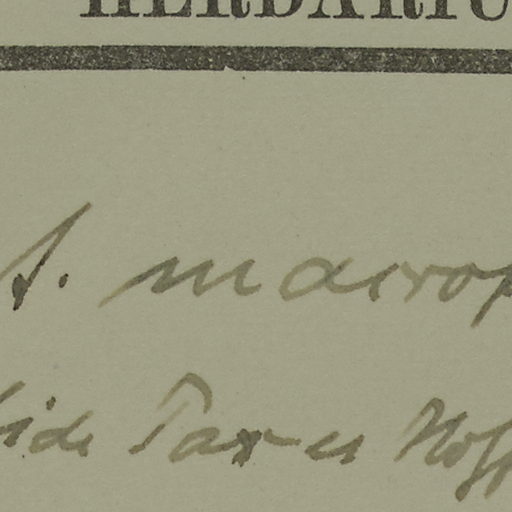 HERBARIU
f. macrop
fide Tax es Hoff